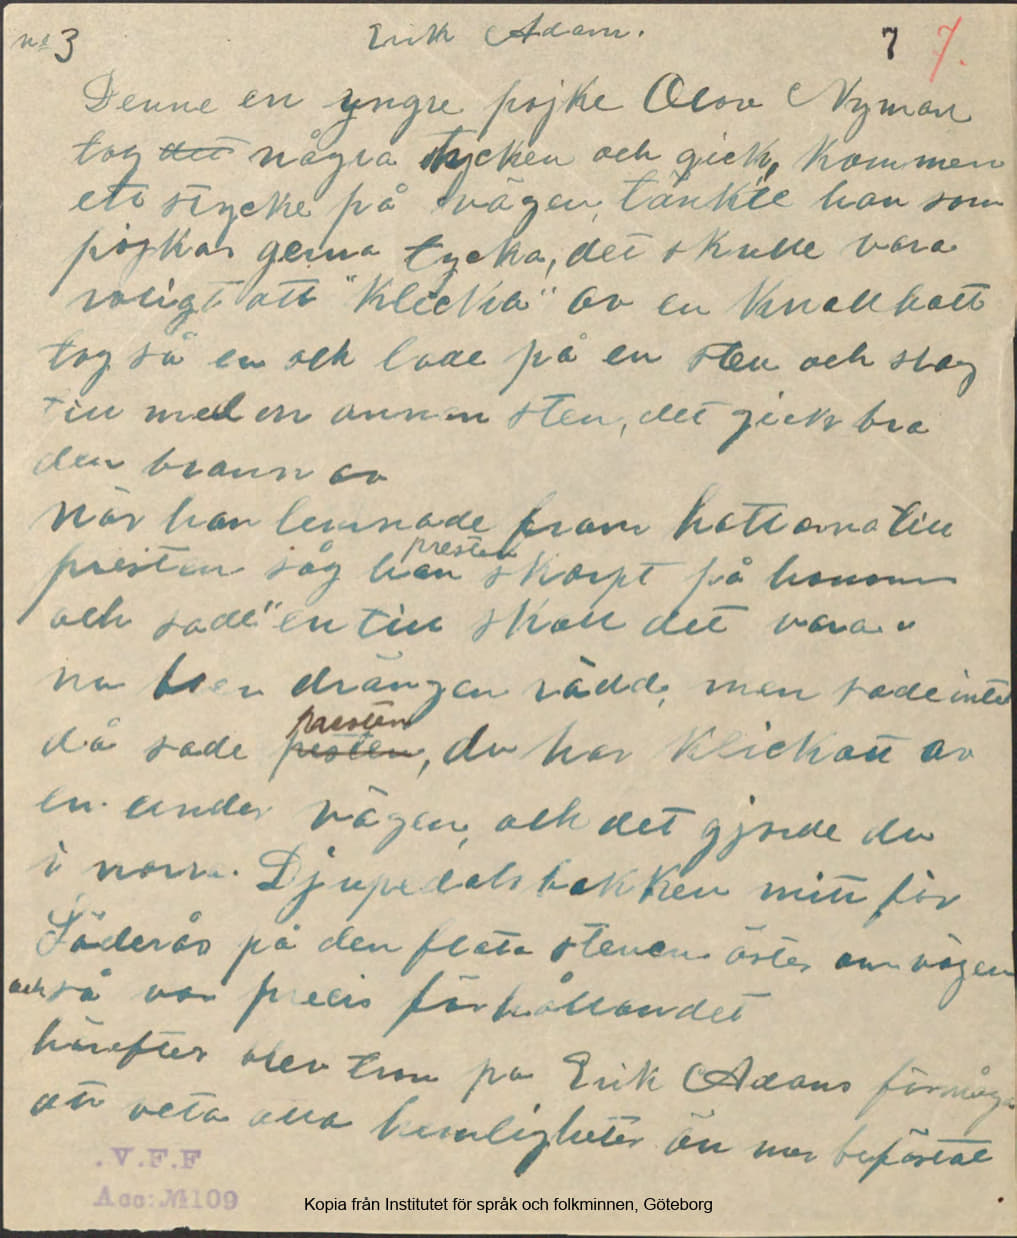 no 3 Erik Adam. 7 7.
Denne en yngre pojke Olov Nyman
tog det några stycken och gick, kommen
ett stycke på vägen, tänkte han som
pojkar gerna tycka, det skulle vara
roligt att "klicka" av en knallhatt
tog så en och lade på en sten och slog
till med en annan sten, det gick bra
den brann av
När han lemnade fram hattarna till
presten såg han presten skarpt på honom
och sade "en till skall det vara"
nu blev drängen rädd, men sade intet
då sade presten presten, du har klickatt av
en under vägen, och det gjorde du
i norra Djupedalsbakken mitt för
Söderås på den flata stenen öster om vägen
och så var precis förhållandet
härefter blev tron på Erik Adams förmåga
att veta alla hemligheter än mer befästat
.V.F.F
Acc: M109
Kopia från Institutet för språk och folkminnen, Göteborg